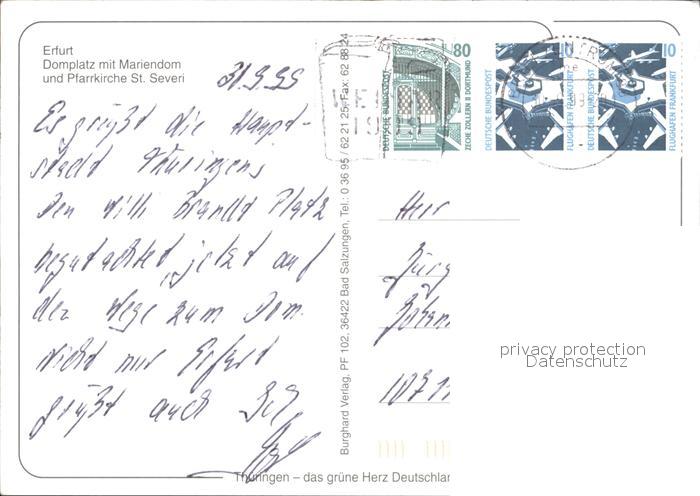 Erfurt
Domplatz mit Mariendom
und Pfarrkirche St. Severi
31.9.99
Es grüßt die Haupt-
stadt Thüringens
Den Willi Brandt Platz
begutachtet, jetzt auf
dem Wege zum Dom.
Nicht nur Erfurt
grüßt auch
Burghard Verlag, PF 102, 36422 Bad Salzungen, Tel.: 0 36 95 / 62 21 25, Fax: 62 88 24
80
DEUTSCHE BUNDESPOST
ZECHE ZOLLERN II DORTMUND
10
DEUTSCHE BUNDESPOST
FLUGHAFEN FRANKFURT
10
DEUTSCHE BUNDESPOST
FLUGHAFEN FRANKFURT
Herr
Jürg
Johan
privacy protection
Datenschutz
Thüringen – das grüne Herz Deutschlan